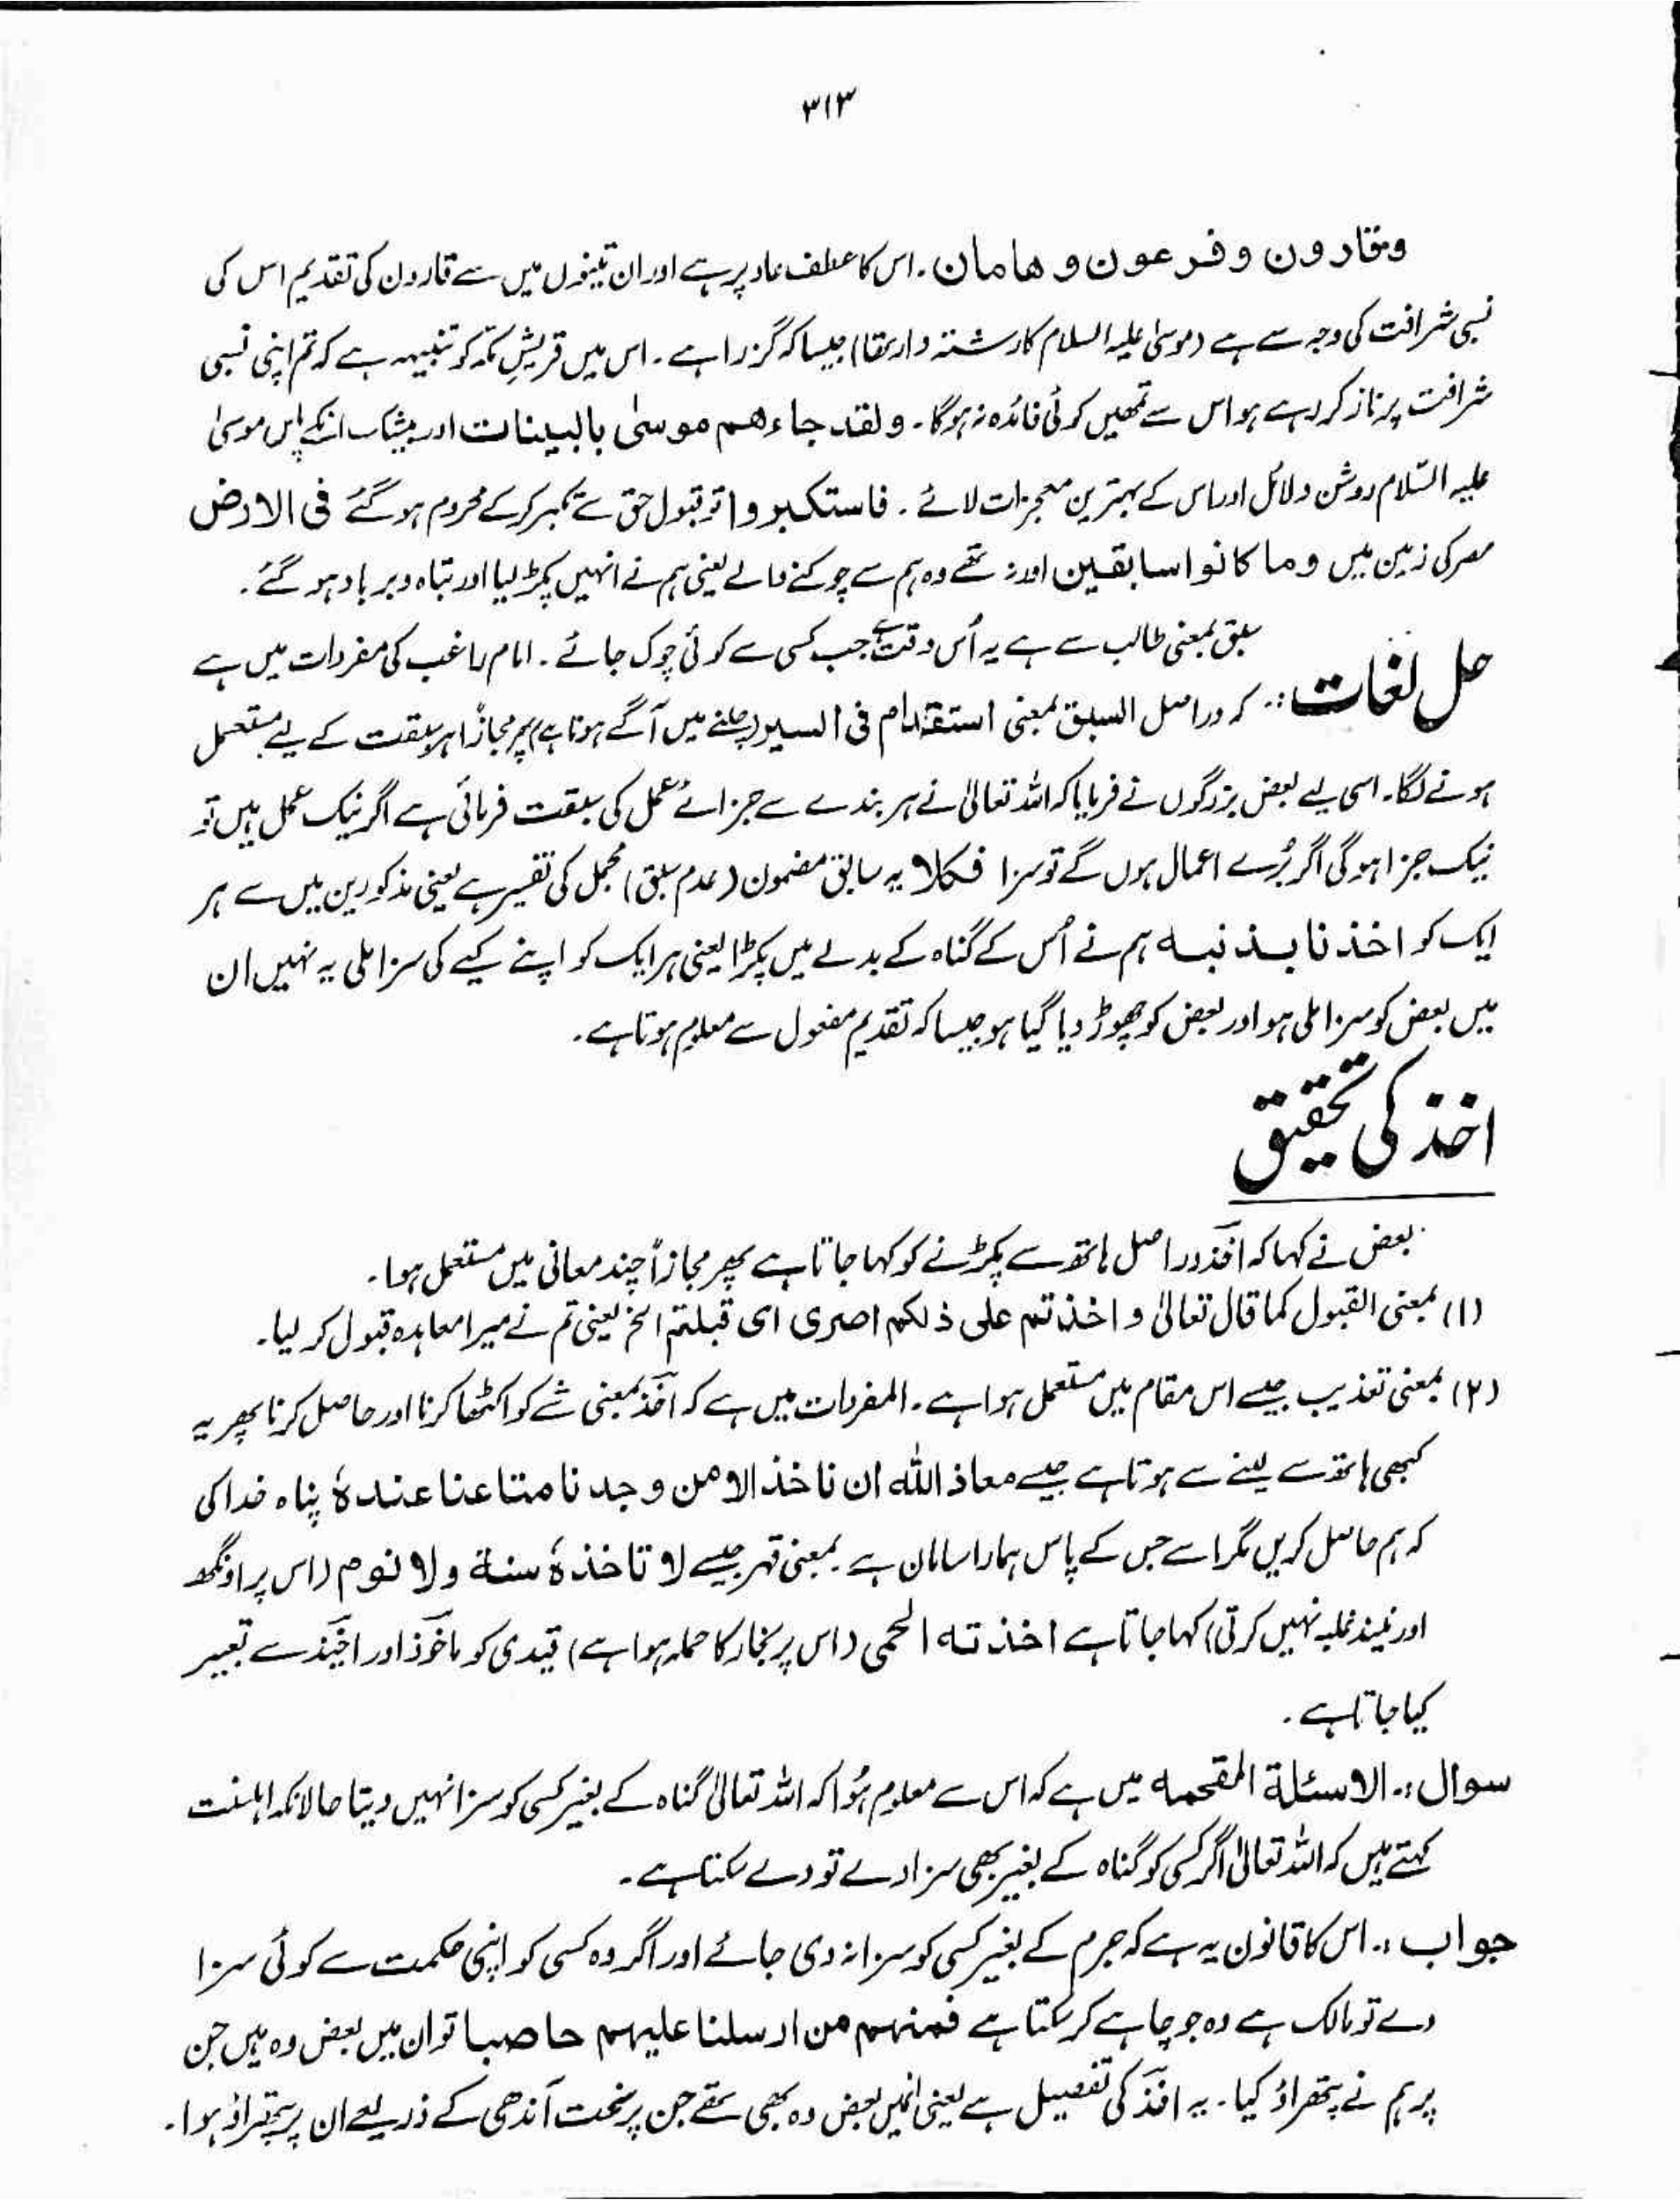 ۳۱۳
وقارون و فرعون و هامان. اس کا عطف عاد پر ہے اور ان تینوں میں سے قارون کی تقدیم اس کی
نسبی شرافت کی وجہ سے ہے (موسیٰ علیہ السلام کا رشتہ دار تھا) جیسا کہ گزرا ہے۔ اس میں قریشِ مکہ کو تنبیہہ ہے کہ تم اپنی نسبی
شرافت پر ناز کر رہے ہو اس سے تمھیں کوئی فائدہ نہ ہوگا۔ ولقد جاءهم موسیٰ بالبینات اور بیشک انکے پاس موسیٰ
علیہ السّلام روشن دلائل اور اس کے بہترین معجزات لائے۔ فاستکبروا تو قبول حق سے تکبر کرکے محروم ہو گئے فی الارض
مصر کی زمین میں وما کانوا سابقین اور نہ تھے وہ ہم سے چوکنے والے یعنی ہم نے انہیں پکڑ لیا اور تباہ و برباد ہو گئے۔
سبق بمعنی طالب سے ہے یہ اُس وقت ہے جب کسی سے کوئی چوک جائے۔ امام راغب کی مفردات میں ہے
حل لغات:۔ کہ دراصل السبق بمعنی استقدام فی السیر (چلنے میں آگے ہونا ہے) پھر مجازاً ہر سبقت کے لیے مستعمل
ہونے لگا۔ اسی لیے بعض بزرگوں نے فرمایا کہ اللہ تعالیٰ نے ہر بندے سے جزائے عمل کی سبقت فرمائی ہے اگر نیک عمل ہیں تو
نیک جزا ہوگی اگر بُرے اعمال ہوں گے تو سزا فکلا یہ سابق مضمون (عدم سبق) مجمل کی تفسیر ہے یعنی مذکورین میں سے ہر
ایک کو اخذنا بذنبه ہم نے اُس کے گناہ کے بدلے میں پکڑا یعنی ہر ایک کو اپنے کیے کی سزا ملی یہ نہیں ان
میں بعض کو سزا ملی ہو اور بعض کو چھوڑ دیا گیا ہو جیسا کہ تقدیم مفعول سے معلوم ہوتا ہے۔
اخذ کی تحقیق
بعض نے کہا کہ اخذ دراصل ہاتھ سے پکڑنے کو کہا جاتا ہے پھر مجازاً چند معانی میں مستعمل ہوا۔
(۱) بمعنی القبول کما قال تعالیٰ و اخذتم علی ذلکم اصری ای قبلتم الخ یعنی تم نے میرا معاہدہ قبول کر لیا۔
(۲) بمعنی تعذیب جیسے اس مقام میں مستعمل ہوا ہے۔ المفردات میں ہے کہ اخذ بمعنی شے کو اکٹھا کرنا اور حاصل کرنا پھر یہ
کبھی ہاتھ سے لینے سے ہوتا ہے جیسے معاذ اللّٰہ ان ناخذ الا من وجدنا متاعنا عندہٗ پناہ خدا کی
کہ ہم حاصل کریں مگر اسے جس کے پاس ہمارا سامان ہے۔ بمعنی قہر جیسے لا تاخذہٗ سنة ولا نوم (اس پر اونگھ
اور نیند غلبہ نہیں کرتی) کہا جاتا ہے اخذته الحمی (اس پر بخار کا حملہ ہوا ہے) قیدی کو ماخوذ اور اخیذ سے تعبیر
کیا جاتا ہے۔
سوال:۔ الاسئلة المقحمه میں ہے کہ اس سے معلوم ہُوا کہ اللہ تعالیٰ گناہ کے بغیر کسی کو سزا نہیں دیتا حالانکہ اہلسنت
کہتے ہیں کہ اللہ تعالیٰ اگر کسی کو گناہ کے بغیر بھی سزا دے تو دے سکتا ہے۔
جواب:۔ اس کا قانون یہ ہے کہ جرم کے بغیر کسی کو سزا نہ دی جائے اور اگر وہ کسی کو اپنی حکمت سے کوئی سزا
دے تو مالک ہے وہ جو چاہے کر سکتا ہے فمنہم من ارسلنا علیہم حاصبا تو ان میں بعض وہ ہیں جن
پر ہم نے پتھراؤ کیا۔ یہ اخذ کی تفصیل ہے یعنی انمیں بعض وہ بھی تھے جن پر سخت آندھی کے ذریعے ان پر پتھراؤ ہوا۔